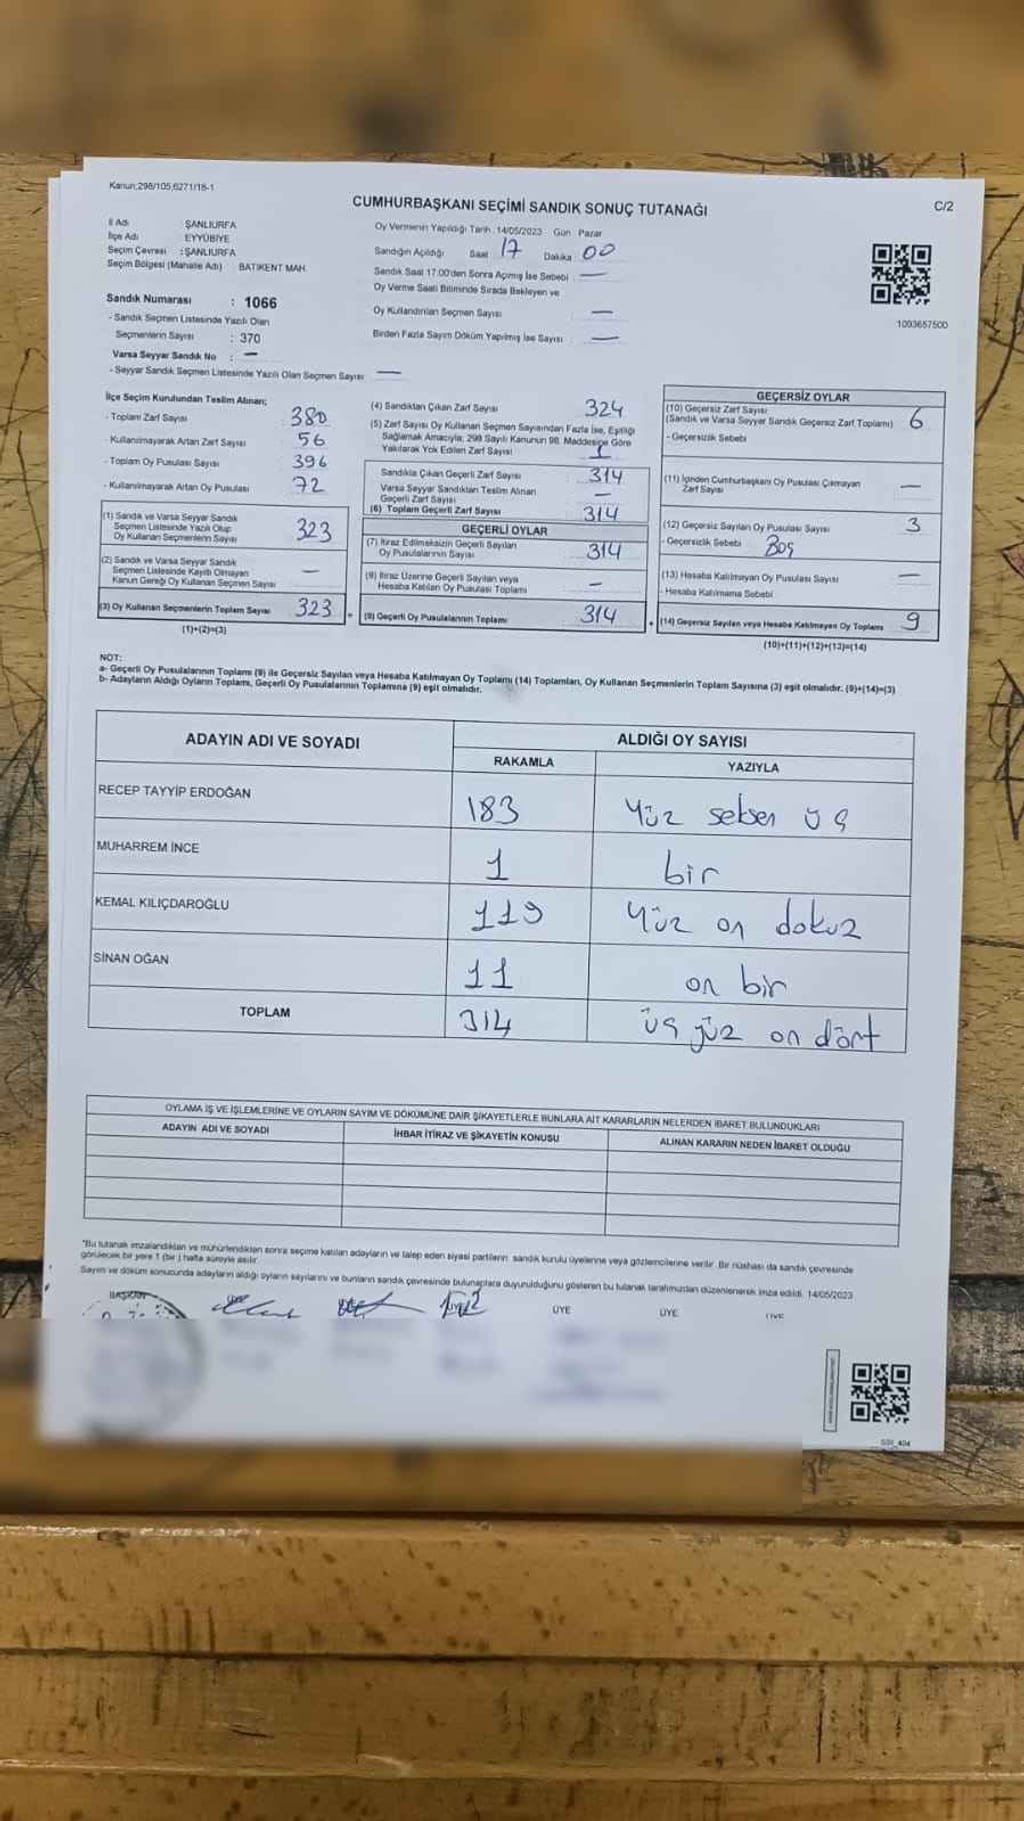 Kanun;298/105,6271/18-1
CUMHURBAŞKANI SEÇİMİ SANDIK SONUÇ TUTANAĞI
C/2
İl Adı ŞANLIURFA
İlçe Adı EYYÜBİYE
Seçim Çevresi : ŞANLIURFA
Seçim Bölgesi (Mahalle Adı) BATIKENT MAH.
Sandık Numarası : 1066
- Sandık Seçmen Listesinde Yazılı Olan
Seçmenlerin Sayısı : 370
Varsa Seyyar Sandık No : —
- Seyyar Sandık Seçmen Listesinde Yazılı Olan Seçmen Sayısı —
Oy Vermenin Yapıldığı Tarih : 14/05/2023 Gün : Pazar
Sandığın Açıldığı Saat 17 Dakika 00
Sandık Saat 17.00'den Sonra Açımış İse Sebebi —
Oy Verme Saati Bitiminde Sırada Bekleyen ve
Oy Kullandırılan Seçmen Sayısı —
Birden Fazla Sayım Döküm Yapılmış İse Sayısı —
1003657500
İlçe Seçim Kurulundan Teslim Alınan;
- Toplam Zarf Sayısı 380
- Kullanılmayarak Artan Zarf Sayısı 56
- Toplam Oy Pusulası Sayısı 396
- Kullanılmayarak Artan Oy Pusulası 72
(1) Sandık ve Varsa Seyyar Sandık
Seçmen Listesinde Yazılı Olup
Oy Kullanan Seçmenlerin Sayısı 323
(2) Sandık ve Varsa Seyyar Sandık
Seçmen Listesinde Kayıtlı Olmayan
Kanun Gereği Oy Kullanan Seçmen Sayısı —
(3) Oy Kullanan Seçmenlerin Toplam Sayısı 323
(1)+(2)=(3)
(4) Sandıktan Çıkan Zarf Sayısı 324
(5) Zarf Sayısı Oy Kullanan Seçmen Sayısından Fazla İse, Eşitliği
Sağlamak Amacıyla; 298 Sayılı Kanunun 98. Maddesine Göre
Yakılarak Yok Edilen Zarf Sayısı 1
Sandıkta Çıkan Geçerli Zarf Sayısı 314
Varsa Seyyar Sandıktan Teslim Alınan
Geçerli Zarf Sayısı —
(6) Toplam Geçerli Zarf Sayısı 314
GEÇERLİ OYLAR
(7) İtiraz Edilmeksizin Geçerli Sayılan
Oy Pusulalarının Sayısı 314
(8) İtiraz Üzerine Geçerli Sayılan veya
Hesaba Katılan Oy Pusulası Toplamı —
(9) Geçerli Oy Pusulalarının Toplamı 314
GEÇERSİZ OYLAR
(10) Geçersiz Zarf Sayısı
(Sandık ve Varsa Seyyar Sandık Geçersiz Zarf Toplamı) 6
- Geçersizlik Sebebi
(11) İçinden Cumhurbaşkanı Oy Pusulası Çıkmayan
Zarf Sayısı —
(12) Geçersiz Sayılan Oy Pusulası Sayısı 3
- Geçersizlik Sebebi Boş
(13) Hesaba Katılmayan Oy Pusulası Sayısı —
- Hesaba Katılmama Sebebi
(14) Geçersiz Sayılan veya Hesaba Katılmayan Oy Toplamı 9
(10)+(11)+(12)+(13)=(14)
NOT:
a- Geçerli Oy Pusulalarının Toplamı (9) ile Geçersiz Sayılan veya Hesaba Katılmayan Oy Toplamı (14) Toplamları, Oy Kullanan Seçmenlerin Toplam Sayısına (3) eşit olmalıdır. (9)+(14)=(3)
b- Adayların Aldığı Oyların Toplamı, Geçerli Oy Pusulalarının Toplamına (9) eşit olmalıdır.
ADAYIN ADI VE SOYADI
ALDIĞI OY SAYISI
RAKAMLA YAZIYLA
RECEP TAYYİP ERDOĞAN 183 Yüz seksen üç
MUHARREM İNCE 1 bir
KEMAL KILIÇDAROĞLU 119 Yüz on dokuz
SİNAN OĞAN 11 on bir
TOPLAM 314 üç yüz on dört
OYLAMA İŞ VE İŞLEMLERİNE VE OYLARIN SAYIM VE DÖKÜMÜNE DAİR ŞİKAYETLERLE BUNLARA AİT KARARLARIN NELERDEN İBARET BULUNDUKLARI
ADAYIN ADI VE SOYADI İHBAR İTİRAZ VE ŞİKAYETİN KONUSU ALINAN KARARIN NEDEN İBARET OLDUĞU
*Bu tutanak imzalandıktan ve mühürlendikten sonra seçime katılan adayların ve talep eden siyasi partilerin sandık kurulu üyelerine veya gözlemcilerine verilir. Bir nüshası da sandık çevresinde
görülecek bir yere 1 (bir) hafta süreyle asılır.
Sayım ve döküm sonucunda adayların aldığı oyların sayılarını ve bunların sandık çevresinde bulunanlara duyurulduğunu gösteren bu tutanak tarafımızdan düzenlenerek imza edildi. 14/05/2023
BAŞKAN ÜYE ÜYE ÜYE